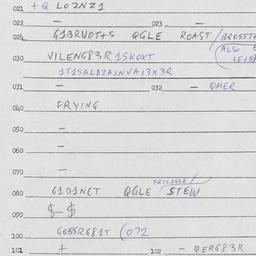 021 + Q LOZNZ1
022 — 023 —
024 G1BRUOT+S QGLE ROAST / BROSST
(ALSO
030 VILENG83R 1SKOXT
1T1SALDZAJNVAJ3X3R
031 — 032 — IOMER
040 FRYING
050 —
060 —
070 —
FRICASSE
080 G1D1NCT QGLE / STEW
090 $-$
100 GOSSRG81T (072
101 + 102 — QERG83R